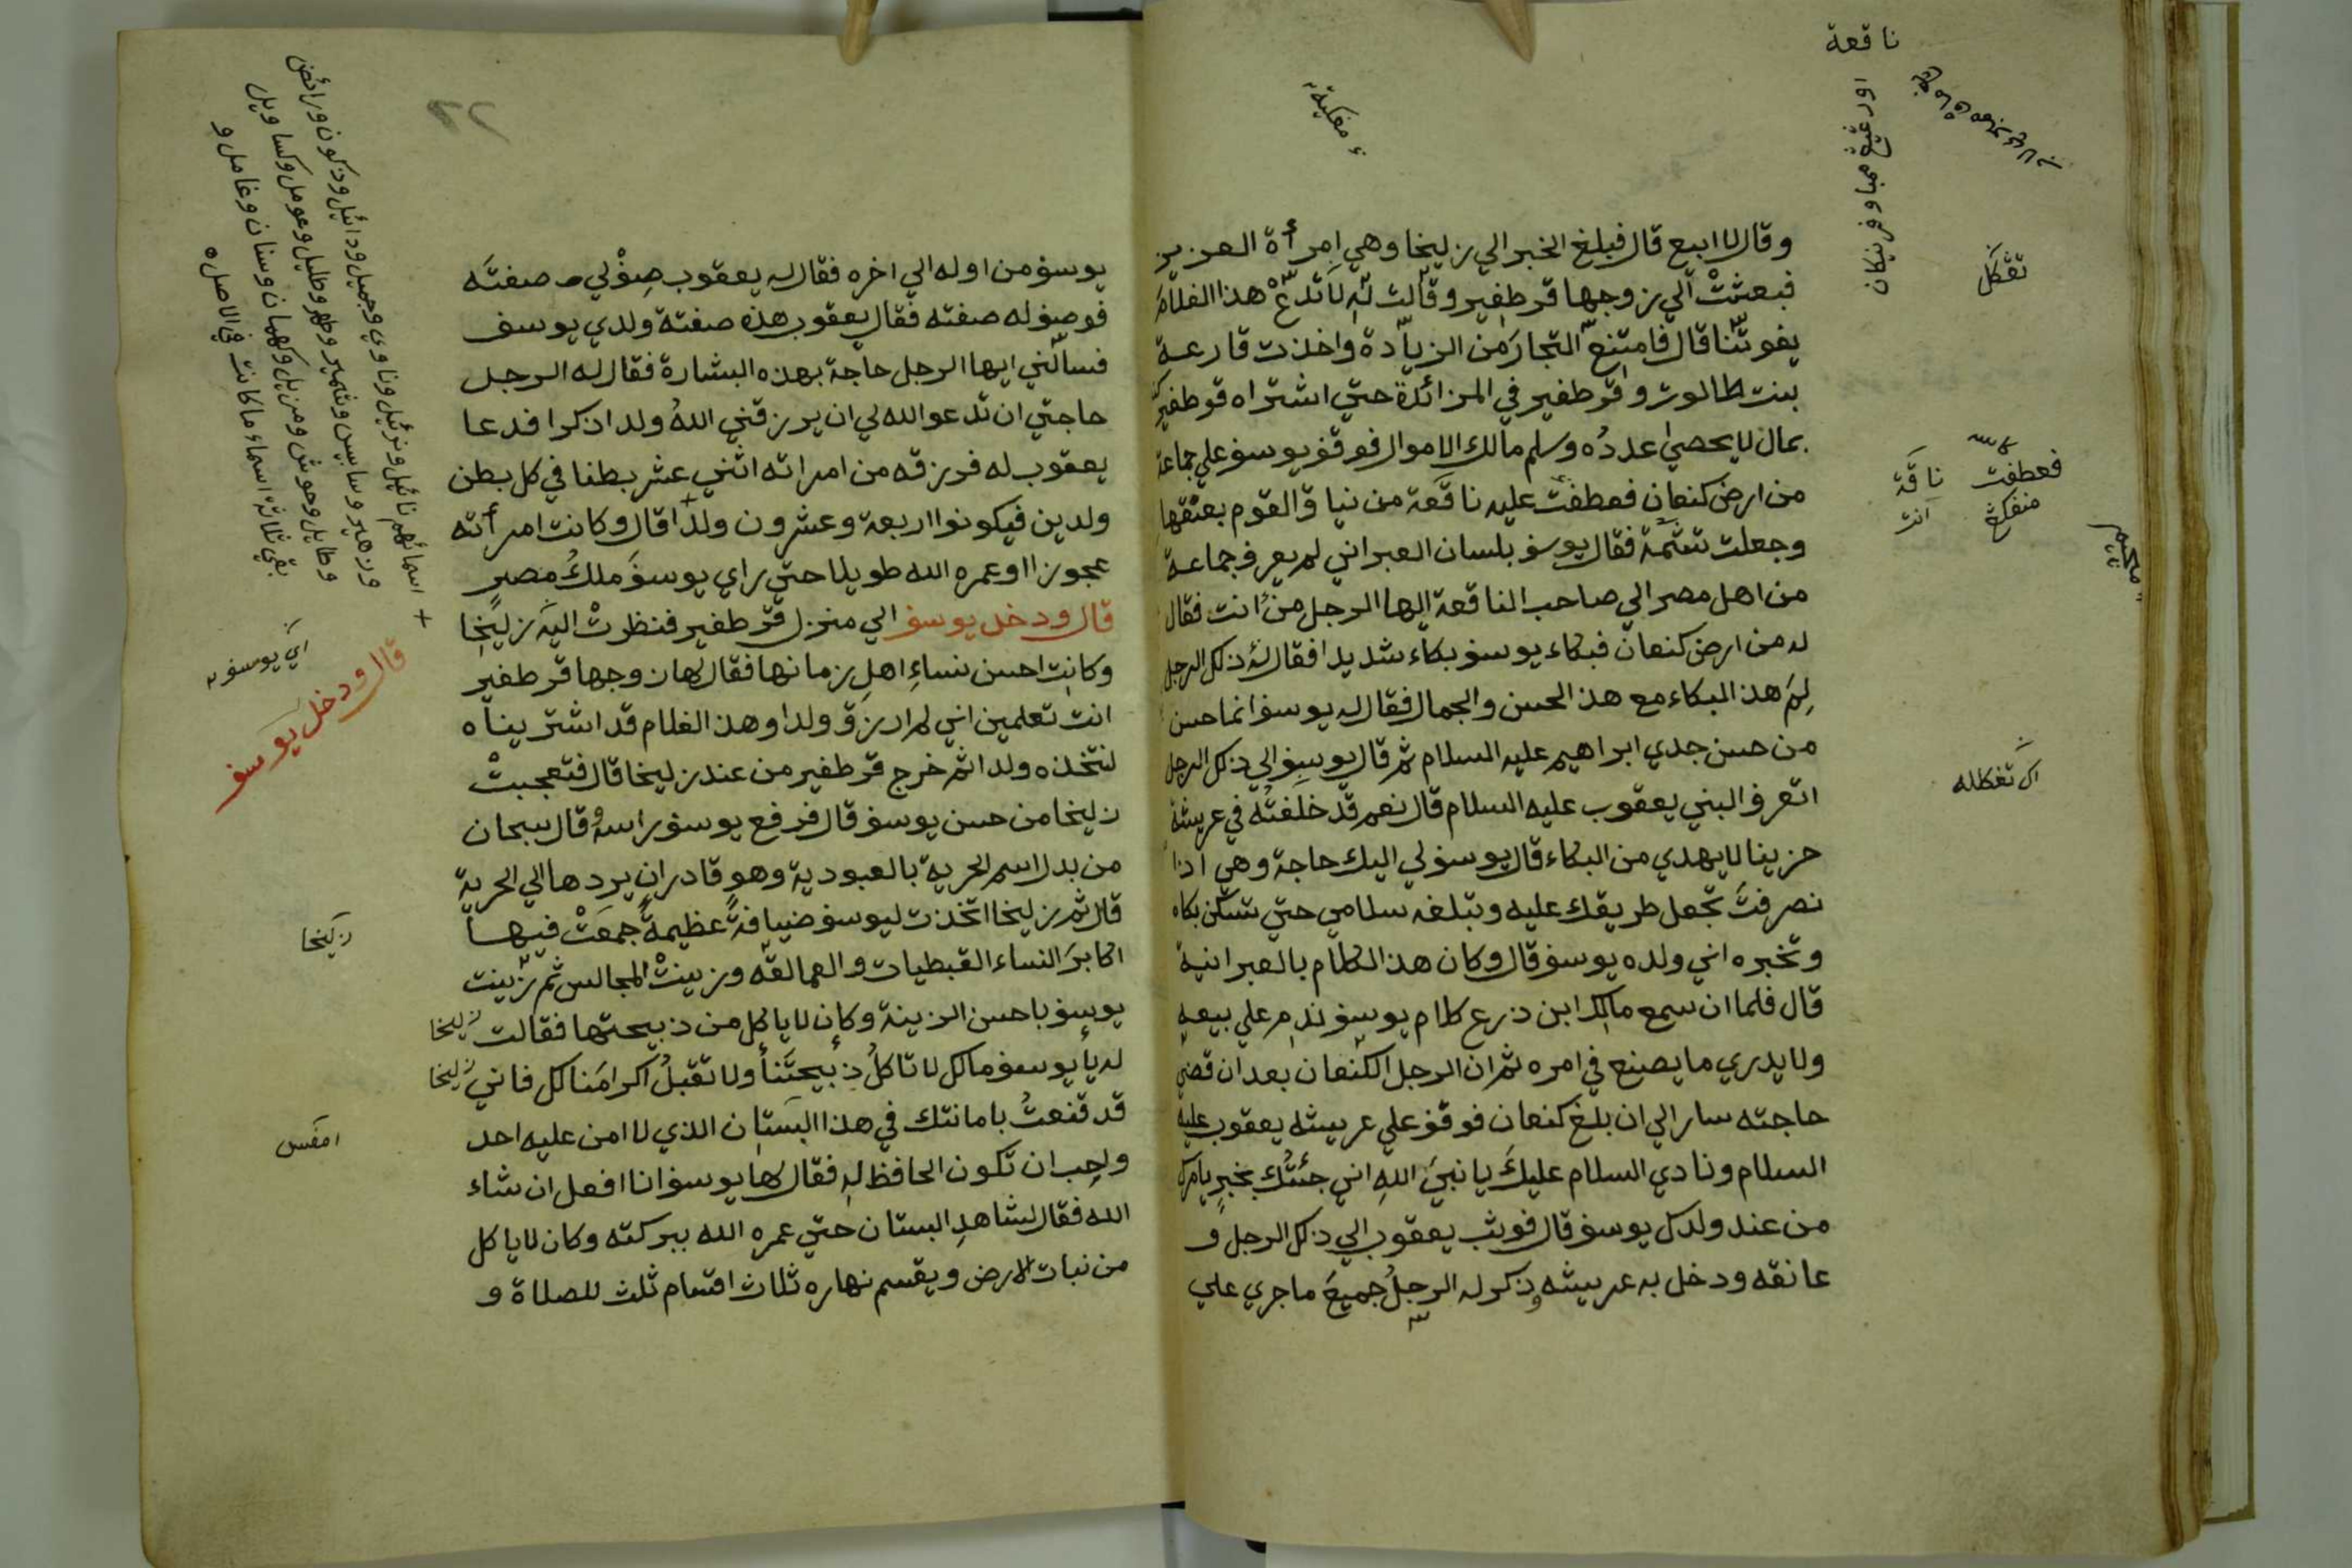 وقال لا ابيع قال فبلغ الخبر الي زليخا وهي امرأة العزيز
فبعثتْ الي زوجها قرطفير وقالت له لا تدع هذا الغلام
يفوتنا قال فامتنع التجار من الزيادة واخذت قارعة
بنت طالوت وقرطفير في المزائدة حتي اشتراه قوطفير
بمال لا يحصي عدده وسلم مالك الاموال فوقف يوسف علي جماعة
من ارض كنعان فعطفت عليه ناقعة من نياق القوم بعنقها
وجعلت تشمة فقال يوسف بلسان العبراني لم يعرف جماعة
من اهل مصر الي صاحب الناقعة ايها الرجل من انت فقال
له من ارض كنعان فبكاء يوسف بكاء شديدا فقال له ذلك الرجل
لِمَ هذا البكاء مع هذ الحسن والجمال فقال له يوسف انما حسن
من حسن جدي ابراهيم عليه السلام ثم قال يوسف الي ذلك الرجل
اتعرف البني يعقوب عليه السلام قال نعم قد خلفته في عريشة
حزينا لا يهدي من البكاء قال يوسف لي اليك حاجة وهي اذا
نصرفت تجعل طريقك عليه وتبلغه سلامي حتي تسكن بكاه
وتخبره اني ولده يوسف قال وكان هذ الكلام بالعبرانية
قال فلما ان سمع مالك ابن ذرع كلام يوسف ندم علي بيعه
ولا يدري ما يصنع في امره ثم ان الرجل الكنعان بعد ان قضي
حاجته سار الي ان بلغ كنعان فوقف علي عريشه يعقوب عليه
السلام ونادي السلام عليك يا نبي الله اني جئتك بخبر يامرك
من عند ولدك يوسف قال فوثب يعقوب الي ذلك الرجل و
عانقه ودخل به عريشه وذكر له الرجلُ جميعَ ما جري علي
ناقعة
تڠكل
فعطفت ناقَة
انت
يوسف من اوله الي اخره فقال له يعقوب صِفْ لي صفتَه
فوصف له صفته فقال يعقوب هذه صفتة ولدي يوسف
فسالني ايها الرجل حاجة بهذه البشارة فقال له الرجل
حاجتي ان تدعو الله لي ان يرزقني اللهُ ولد اذكرا فدعا
يعقوب له فرزقه من امراته اثني عشر بطنا في كل بطن
ولدين فيكونوا اربعة وعشرون ولدا قال وكانت امرأته
عجوزا او عمره الله طويلا حتي راي يوسفَ ملكُ مصر
قال ودخل يوسف الي منزل قرطفير فنظرتْ اليه زليخا
وكانت احسن نساءِ اهلِ زمانها فقال لها زوجها قرطفير
انت تعلمين اني لم ارزق ولدا وهذ الغلام قد اشتريناه
لنتخذه ولدا ثم خرج قرطفير من عند زليخا قال فتعجبتْ
زليخا من حسن يوسف قال فرفع يوسف راسه وقال سبحان
من بدل اسم الحرية بالعبودية وهو قادر ان يردها الي الحرية
قال ثم زليخا اتخذت ليوسف ضيافةً عظيمةً جمعَتْ فيها
اكابرَ النساء القبطيات والعمالقه وزينتْ المجالس ثم زينت
يوسف باحسن الزينة وكان لا ياكل من ذبيحتها فقالت زليخا
له يا يوسف مالك لا تاكلُ ذبيحتَنا ولا تقبلُ اكرامَنا لك فاني زليخا
قد قنعتُ بامانتك في هذا البستان الذي لا امن عليه احد
واحب ان تكون الحافظ له فقال لها يوسف انا افعل ان شاء
الله فقال لشاهدِ البستان حتي عمره الله ببركته وكان لا ياكل
من نبات الارض ويقسم نهاره ثلاث اقسام ثلث للصلاة و
+ اسمائهم نائيل ونزئيل وناوي وجميل ودائيل وذكون ورائض
وزهير وسابس وشمير وطهر وظليل وعومل وكساويل
وطايل وحوش ومزيل وكهمان وسنان وغامل و
بقي ثلاثة اسماء ما كانت في الاصل ه
اي يوسف
قال ودخل يوسف
زليخا